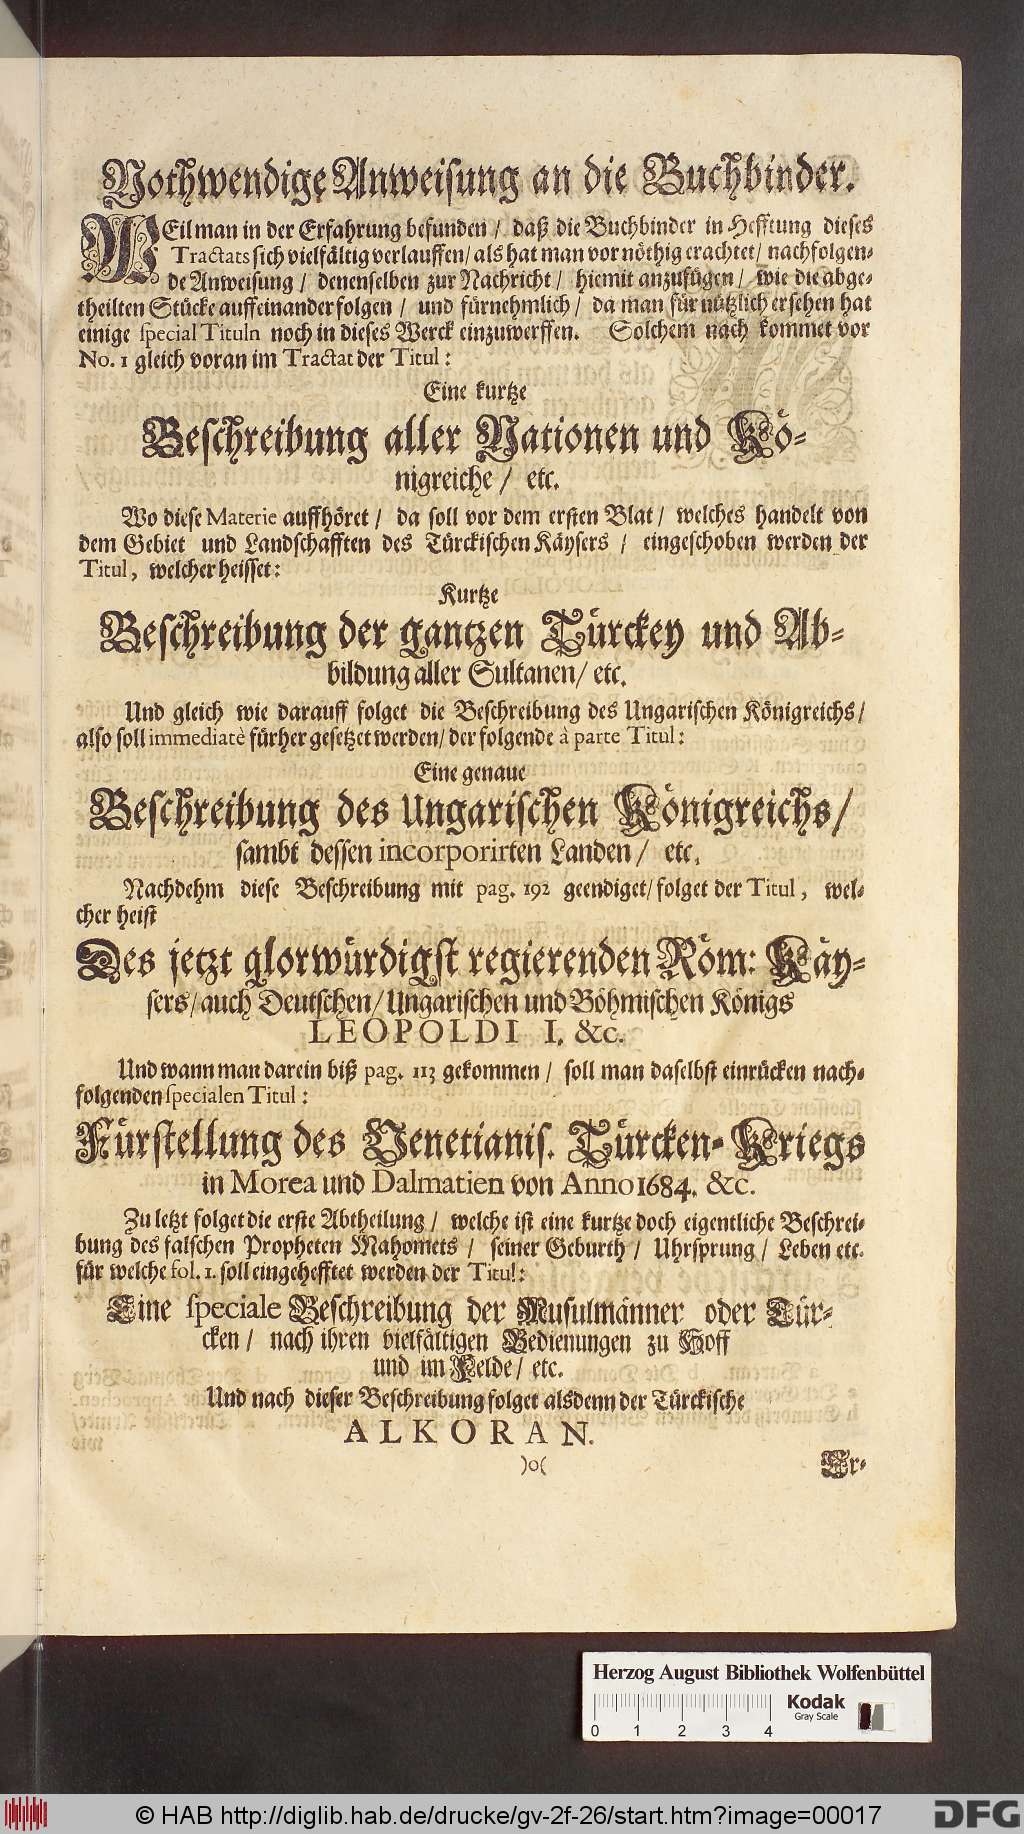 Nothwendige Anweisung an die Buchbinder.
WEil man in der Erfahrung befunden / daß die Buchbinder in Hefftung dieses
Tractats sich vielfältig verlauffen / als hat man vor nöthig erachtet / nachfolgen-
de Anweisung / denenselben zur Nachricht / hiemit anzufügen / wie die abge-
theilten Stücke auffeinander folgen / und fürnehmlich / da man für nützlich ersehen hat
einige special Tituln noch in dieses Werck einzuwerffen. Solchem nach kommet vor
No. 1 gleich voran im Tractat der Titul:
Eine kurtze
Beschreibung aller Nationen und Kö-
nigreiche / etc.
Wo diese Materie auffhöret / da soll vor dem ersten Blat / welches handelt von
dem Gebiet und Landschafften des Türckischen Käysers / eingeschoben werden der
Titul, welcher heisset:
Kurtze
Beschreibung der gantzen Türckey und Ab-
bildung aller Sultanen / etc.
Und gleich wie darauff folget die Beschreibung des Ungarischen Königreichs /
also soll immediatè fürher gesetzet werden / der folgende à parte Titul:
Eine genaue
Beschreibung des Ungarischen Königreichs /
sambt dessen incorporirten Landen / etc.
Nachdehm diese Beschreibung mit pag. 192 geendiget / folget der Titul, wel-
cher heist
Des jetzt glorwürdigst regierenden Röm: Käy-
sers / auch Deutschen / Ungarischen und Böhmischen Königs
LEOPOLDI I. &c.
Und wann man darein biß pag. 113 gekommen / soll man daselbst einrücken nach-
folgenden specialen Titul:
Fürstellung des Venetianis. Türcken-Kriegs
in Morea und Dalmatien von Anno 1684. &c.
Zu letzt folget die erste Abtheilung / welche ist eine kurtze doch eigentliche Beschrei-
bung des falschen Propheten Mahomets / seiner Geburth / Uhrsprung / Leben etc.
für welche fol. 1. soll eingehefftet werden der Titul:
Eine speciale Beschreibung der Musulmänner oder Tür-
cken / nach ihren vielfältigen Bedienungen zu Hoff
und im Felde / etc.
Und nach dieser Beschreibung folget alsdenn der Türckische
ALKORAN.
)o(
Er-
Herzog August Bibliothek Wolfenbüttel
Kodak
Gray Scale
0 1 2 3 4
© HAB http://diglib.hab.de/drucke/gv-2f-26/start.htm?image=00017
DFG